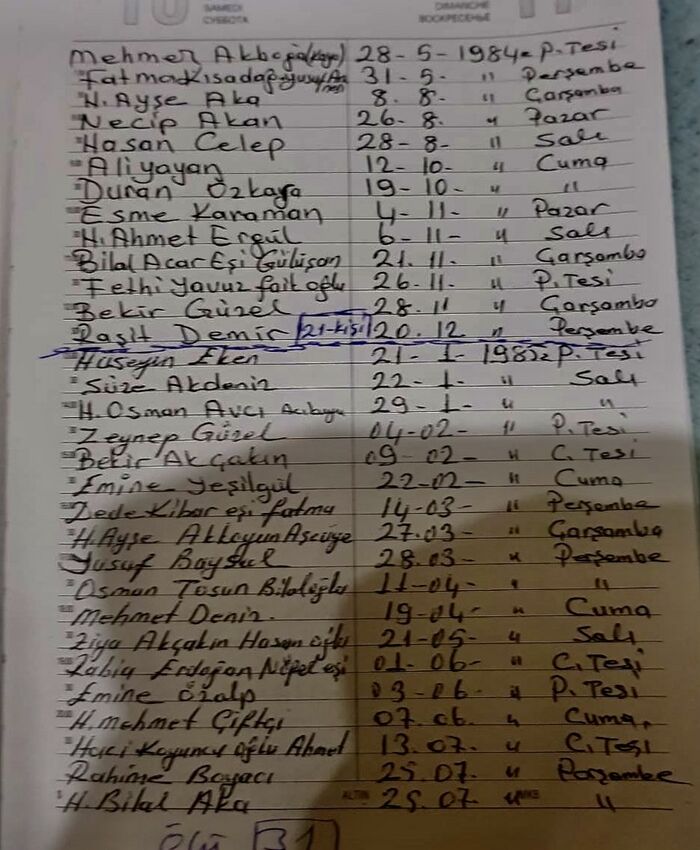 SAMEDI
СУББОТА
DIMANCHE
ВОСКРЕСЕНЬЕ
Mehmet Akboğa (Kaya) 28-5-1984 P.Tesi
Fatma Kısadap Yusuf 31-5- " Perşembe
H. Ayşe Aka 8.8- " Çarşamba
Necip Akan 26-8. " Pazar
Hasan Celep 28-8- " Salı
Ali yayan 12-10- " Cuma
Duran Özkaya 19-10- " "
Esme Karaman 4-11- " Pazar
H. Ahmet Ergül 6-11- " Salı
Bilal Acar Eşi Gülüşan 21.11. " Çarşamba
Fethi Yavuz faik oğlu 26-11. " P.Tesi
Bekir Güzel 28.11 " Çarşamba
Raşit Demir 21-kişi 20.12 " Perşembe
Hüseyin Eken 21-1-1985 P.Tesi
Süze Akdeniz 22-1- " Salı
H. Osman Avcı 29-1- " "
Zeynep Güzel 04-02- " P.Tesi
Bekir Akçakın 09-02- " C.Tesi
Emine Yeşilgül 22-02- " Cuma
Dede Kibar eşi fatma 14-03- " Perşembe
H. Ayşe Akkoyun Aşcıye 27.03- " Çarşamba
Yusuf Baysal 28.03- " Perşembe
Osman Tosun Bilaloğlu 11-04- " "
Mehmet Deniz. 19-04- " Cuma
Ziya Akçakın Hasan oğlu 21-05- " Salı
Rabia Erdoğan eşi 01-06- " C.Teşi
Emine Özalp 03-06- " P.Tesi
H. Mehmet Çiftçi 07.06. " Cuma.
Haci Koyuncu oğlu Ahmet 13.07. " C.Teşi
Rahime Boyacı 25.07. " Perşembe
H. Bilal Aka 25.07 " "
ÖLÜ 31